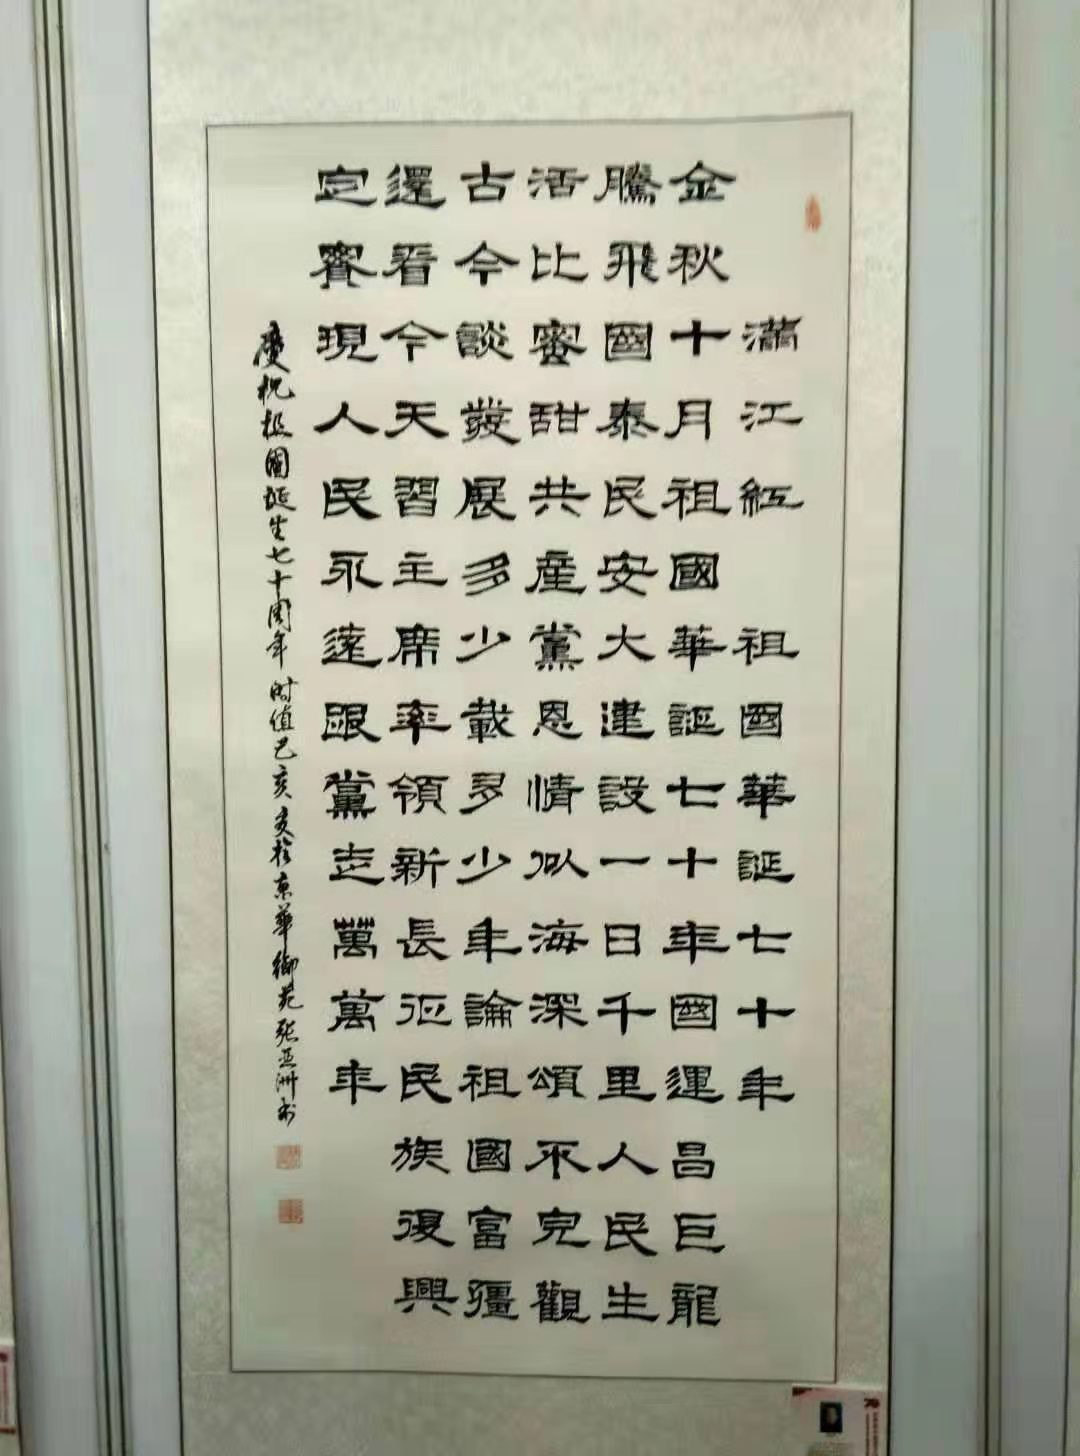 滿江紅 祖國華誕七十年
金秋十月祖國華誕七十年國運昌巨龍
騰飛國泰民安大建設一日千里人民生
活比蜜甜共產黨恩情似海深頌不完觀
古今談發展多少載多少年論祖國富疆
還看今天習主席率領新長征民族復興
定實現人民永遠跟黨走萬萬年
慶祝祖國誕生七十周年时值己亥亥於京華御苑張亚洲书